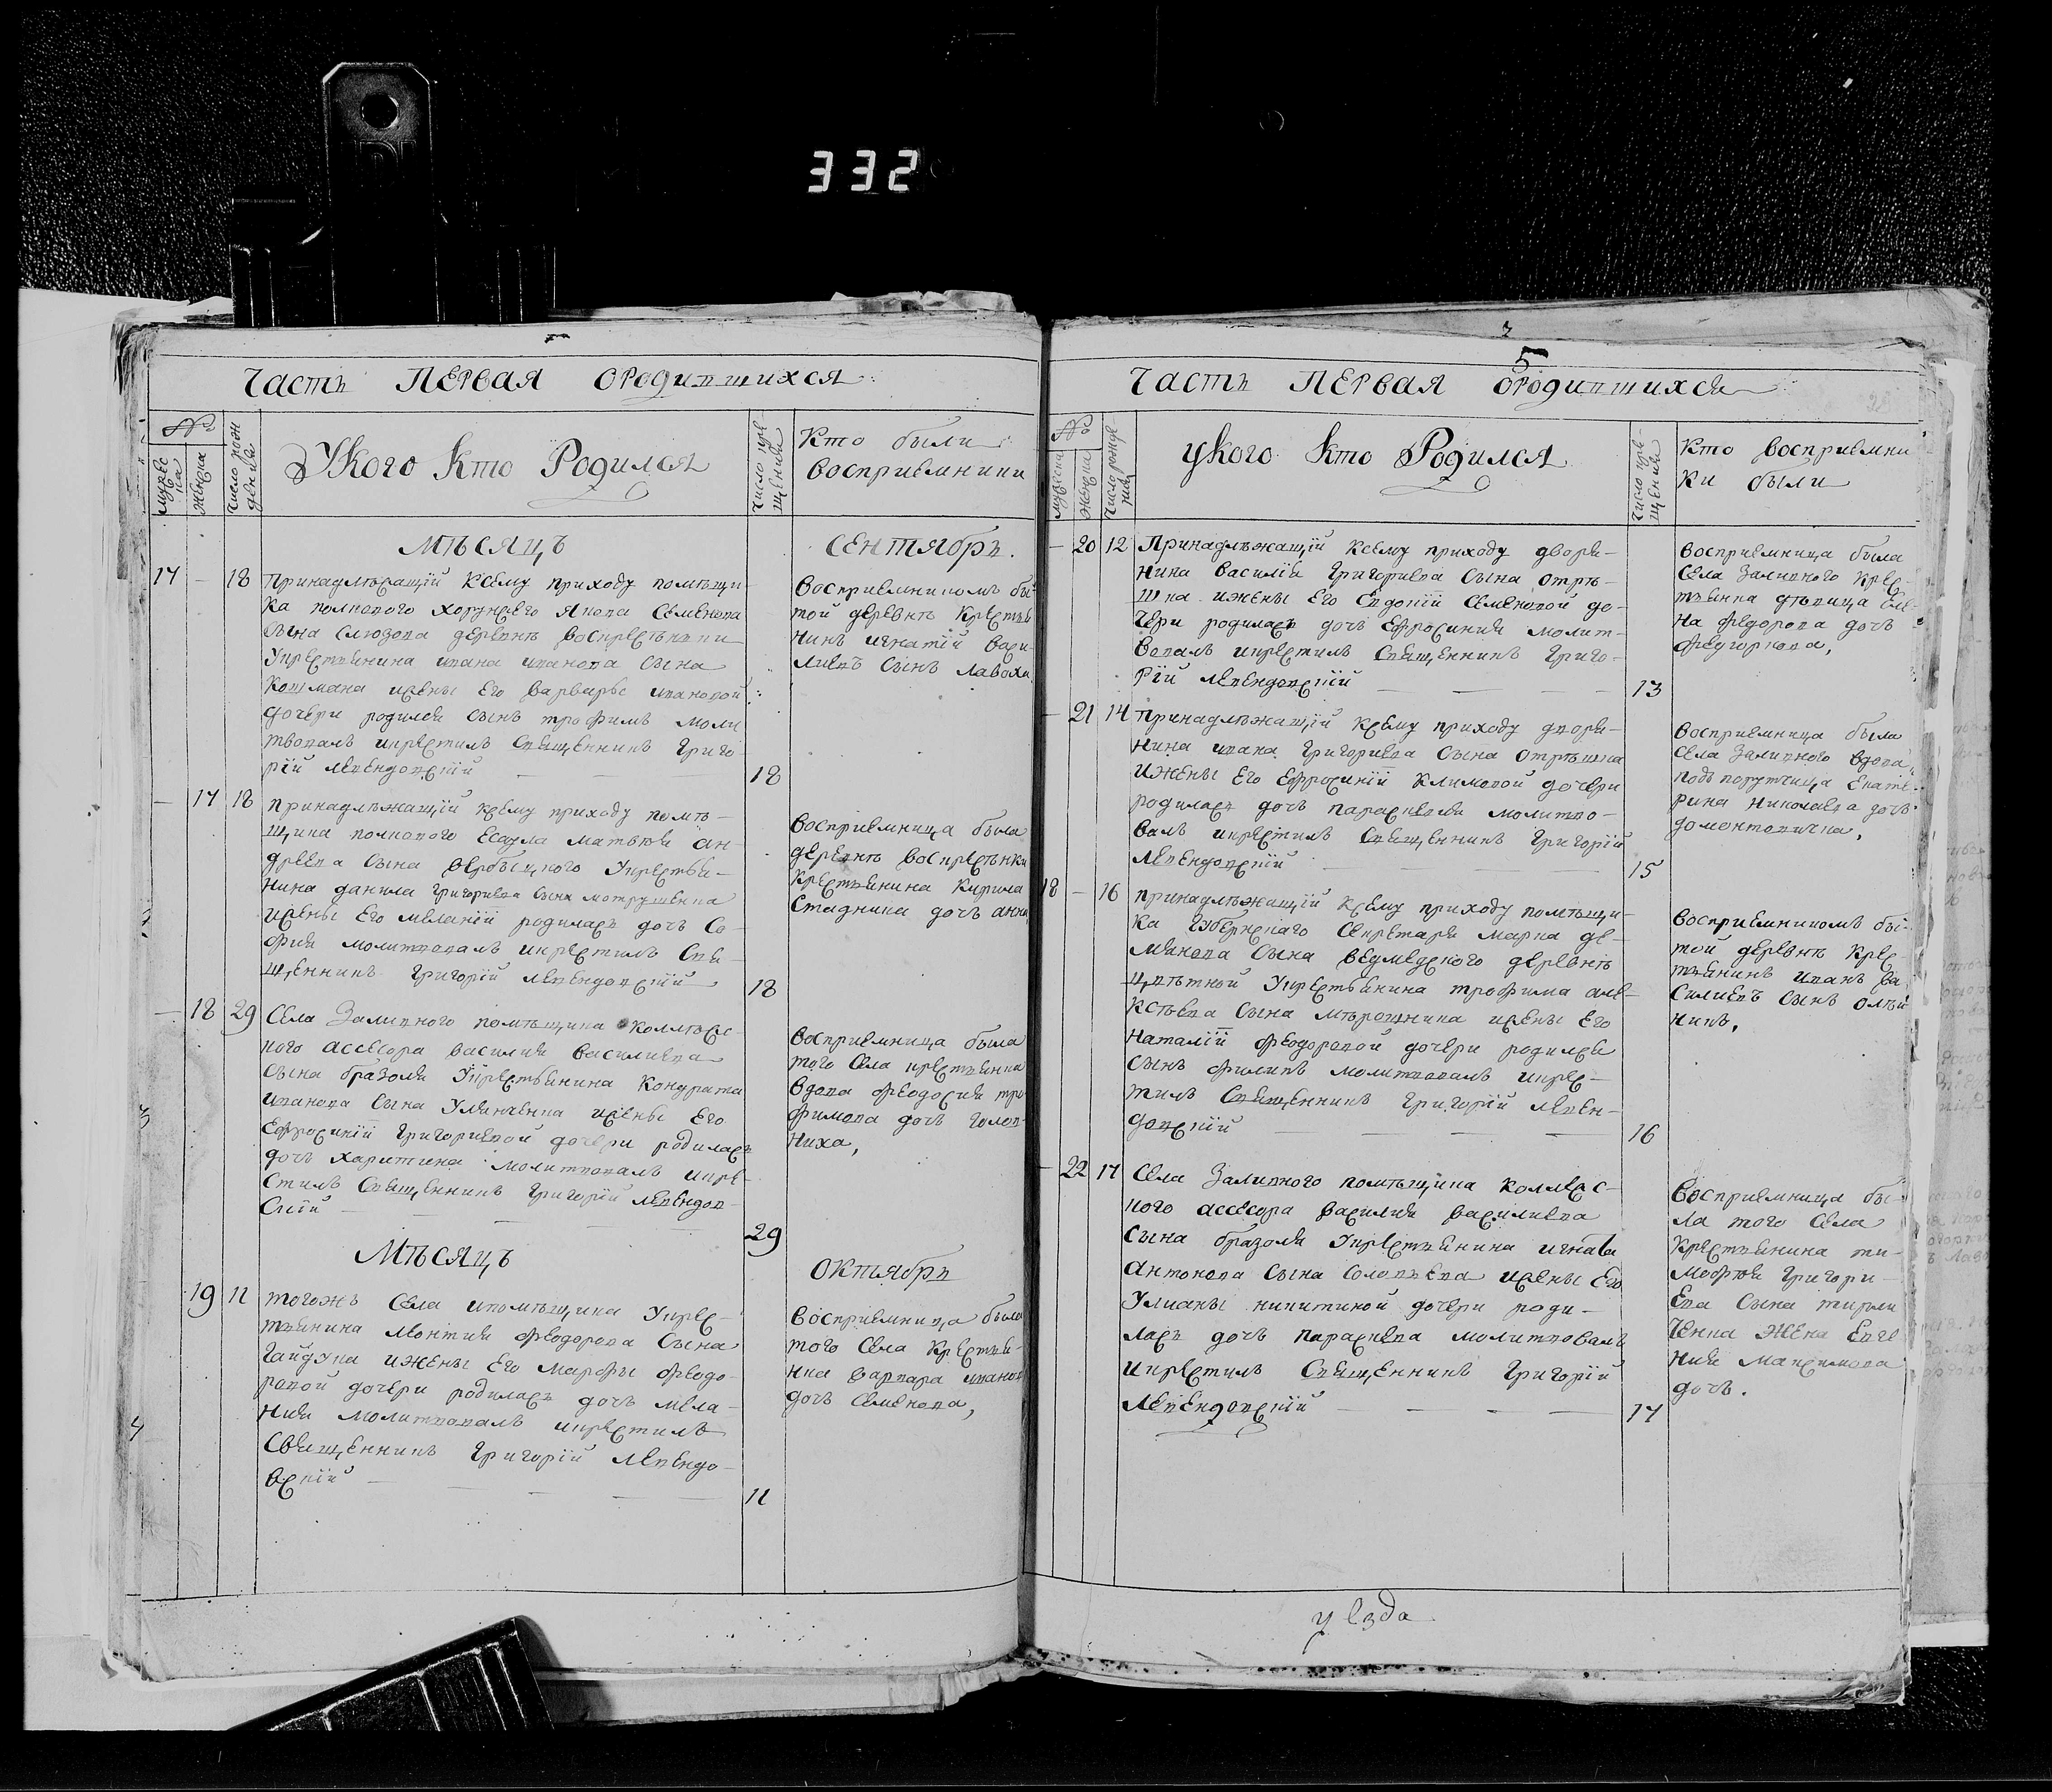 332
Часть ПЕРВАЯ ородившихся
№
мужеска
женска
Число рождения
Укого Кто Родился
Число крещения
Кто были
восприемники
МѢСЯЦЪ
СЕНТЯбрь.
17 - 18
Принадлежащiй Ксему приходу помѣщи-
ка полкового хорунжего Якова Семенова
Сына Слюзова деревнѣ воскресѣнкки
Укрестьянина ивана иванова Сына
Кошмана жены Его Варвары ивановой
дочери родился Сынъ трофимъ моли
твовалъ икрестилъ Священникъ Григо-
рiй Левендовскiй
18
Восприемникомъ бы
той деревнѣ Крестья
нинъ игнатiй васи
лiевъ Сынъ
- 17 18
принадлежащiй ксему приходу помѣ-
щика полкового Есаула Матвѣя ан-
дреева Сына вербыцкого Укрестья-
нина данила григориева Сына мотрушенка
жены Его меланiй родилась дочь Со-
фия молитвовалъ икрестилъ Свя-
щенникъ Григорiй Левендовскiй
18
восприемница была
деревнѣ воскресѣнки
Крестьянина Кирила
Стадника дочь анна
- 18 29
Села Заливного помѣщика коллѣжс-
кого ассесора василия василиева
Сына бразоля Укрестьянина Кондрата
иванова Сына Улянченка жены Его
Ефросинiй Григориевой дочери родилась
дочь харитина молитвовалъ икре-
стилъ Священникъ Григорiй Левендов-
Скiй
29
восприемница была
того Села крестьянка
вдова феодосия тро
фимова дочь голов-
ниха,
МѢСЯЦЪ
Октябрь
19 11
тогожъ Села ипомѣщика Укрес-
тьянина леонтия феодорова Сына
Гайдука ижены Его марфы феодо-
ровой дочери родилась дочь мела-
ния молитвовалъ икрестилъ
Священникъ Григорiй Левендо-
вскiй
11
восприемница была
того Села Крестья-
нка варвара иванов
дочь Семенова,
5
Часть ПЕРВАЯ ородившихся
№
мужеска
женска
Число рожде
ния
укого Кто Родился
Число кре-
щения
Кто восприемни
ки были
- 20 12
Принадлежащiй ксему приходу дворя-
нина василiя Григориева Сына отрѣ-
шка ижены Его Евдокiй Семеновой до-
чери родилась дочь Ефросиния молит-
вовалъ икрестилъ Священникъ Григо-
рiй левендовскiй
13
восприемница была
Села Заливного Крес-
тьянка дѣвица Еле-
на федорова дочь
- 21 14
принадлежащiй ксему приходу дворя-
нина ивана Григориева Сына отрѣшка
ижены Его Ефросинiй Климовой дочери
родилась дочь параскевия молитво-
валъ икрестилъ Священникъ Григорiй
левендовскiй
15
восприемница была
Села Заливного вдова
подъ порутчица Екате-
рина николаева дочь
домонтовична,
18 - 16
принадлежащiй ксему приходу помѣщи-
ка Губернскаго Секретаря марка де-
мянова Сына ведмедского деревнѣ
цвѣтной Укрестьянина трофима але-
ксѣева Сына мѣрошника жены Его
наталiй феодоровой дочери родился
Сынъ филипъ молитвовалъ икрес-
тилъ Священникъ Григорiй левен-
довскiй
16
Восприемникомъ бы-
той деревнѣ Крес-
тьянинъ иванъ ва
Силиевъ Сынъ олѣй
никъ,
- 22 17
Села Заливного помѣщика коллежс-
кого ассесора василия василиева
Сына бразоля Укрестьянина игната
антонова Сына Соловьева жены Его
Улианы никитиной дочери роди-
лась дочь параскева молитвовалъ
икрестилъ Священникъ Григорiй
левендовскiй
17
Восприемница бы-
ла того Села
Крестьянина ти-
мофѣя Григори-
Ева Сына
ченка жена Евге
ния максимова
дочь.
уезда